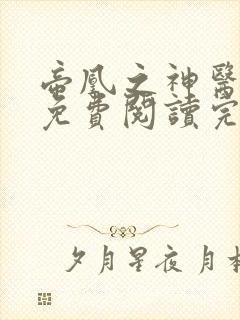 帝凰之神醫
免費閱讀完
夕月星夜 月